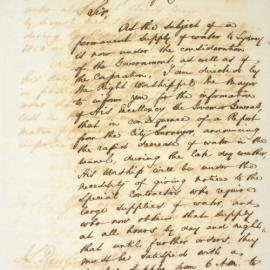 Sir,
As the subject of a
permanent supply of water to Sydney
is now under the consideration
of the Government, as well as of
the Corporation, I am directed by
the Right Worshipful the Mayor
to inform you, for the information
of His Excellency the Governor General,
that in consequence of a Report
from the City Surveyor, announcing
the rapid decrease of water in the
tunnel, during the late dry weather,
His Worship will be under the
necessity of giving notice to the
special Contractors who require
large supplies of water, and
who now obtain that supply
at all hours, by day and night,
that until further orders, they
must be satisfied with a
from 6 A.M. to